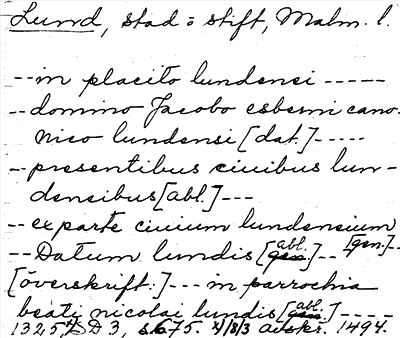 Lund, stad o stift, Malm. l.
--in placito lundensi -----
--domino Jacobo esberni cano-
nico lundensi [dat.]-----
--presentibus ciuibus lun-
densibus [abl.]---
--ex parte ciuium lundensium
[gen.]--
--Datum lundis [abl.]--
[överskrift:]--- in parrochia
beati nicolai lundis [abl.]----
1325 SD 3, s. 675. 4/8/3 avskr. 1494.